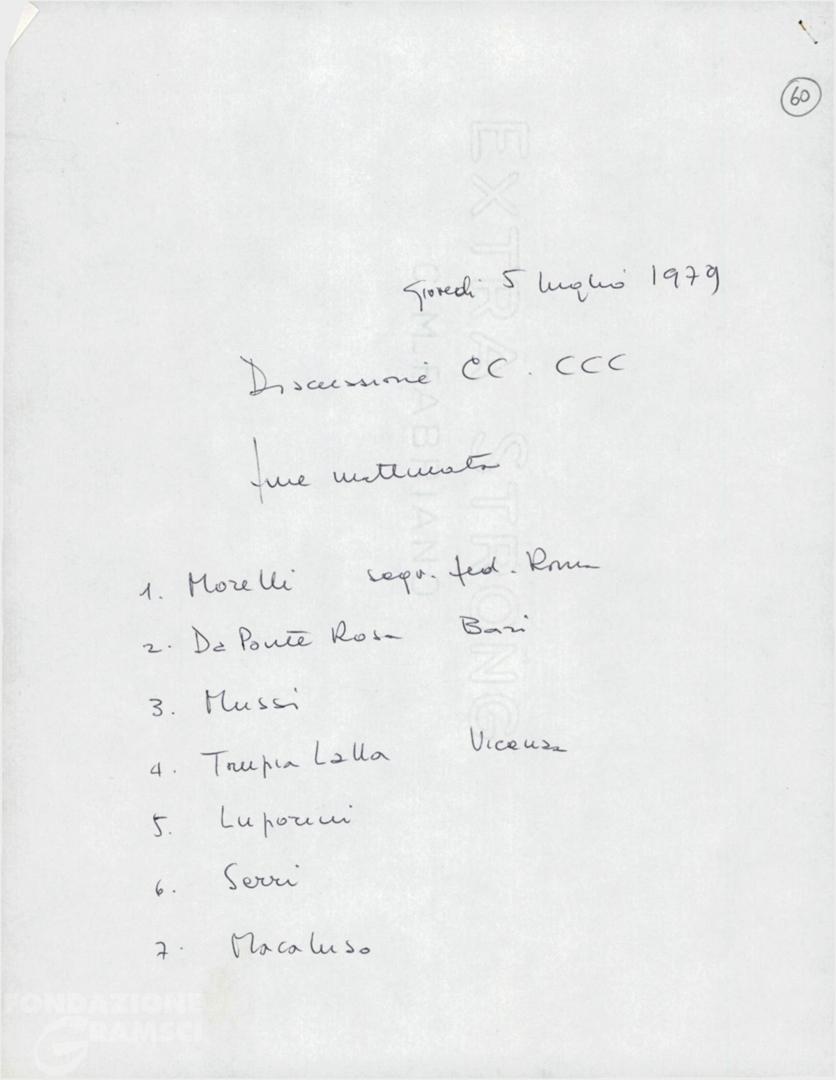 60
Giovedi 5 luglio 1979
Discussione CC. CCC
fine mattinata
1. Morelli segr. fed. Roma
2. Da Ponte Rosa Bari
3. Mussi
4. Trupia Lalla Vicenza
5. Luporini
6. Serri
7. Macaluso
EXTRA STRONG
FABRIANO
FONDAZIONE
GRAMSCI